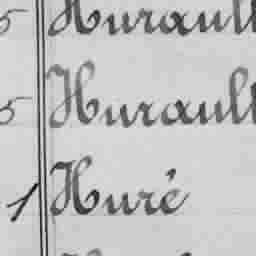 5 Hurault
5 Hurault
1 Huré